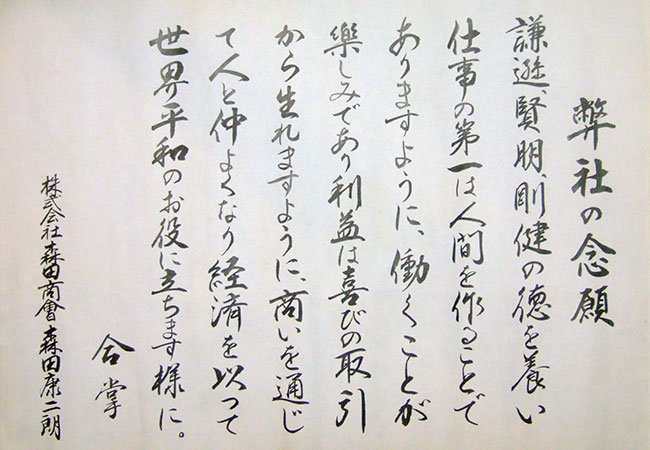 弊社の念願
謙遜、賢明、剛健の徳を養い
仕事の第一は人間を作ることで
ありますように、働くことが
樂しみであり利益は喜びの取引
から生れますように、商いを通じ
て人と仲よくなり経済を以って
世界平和のお役に立ちます様に。
合掌
株式会社森田商會森田康二朗